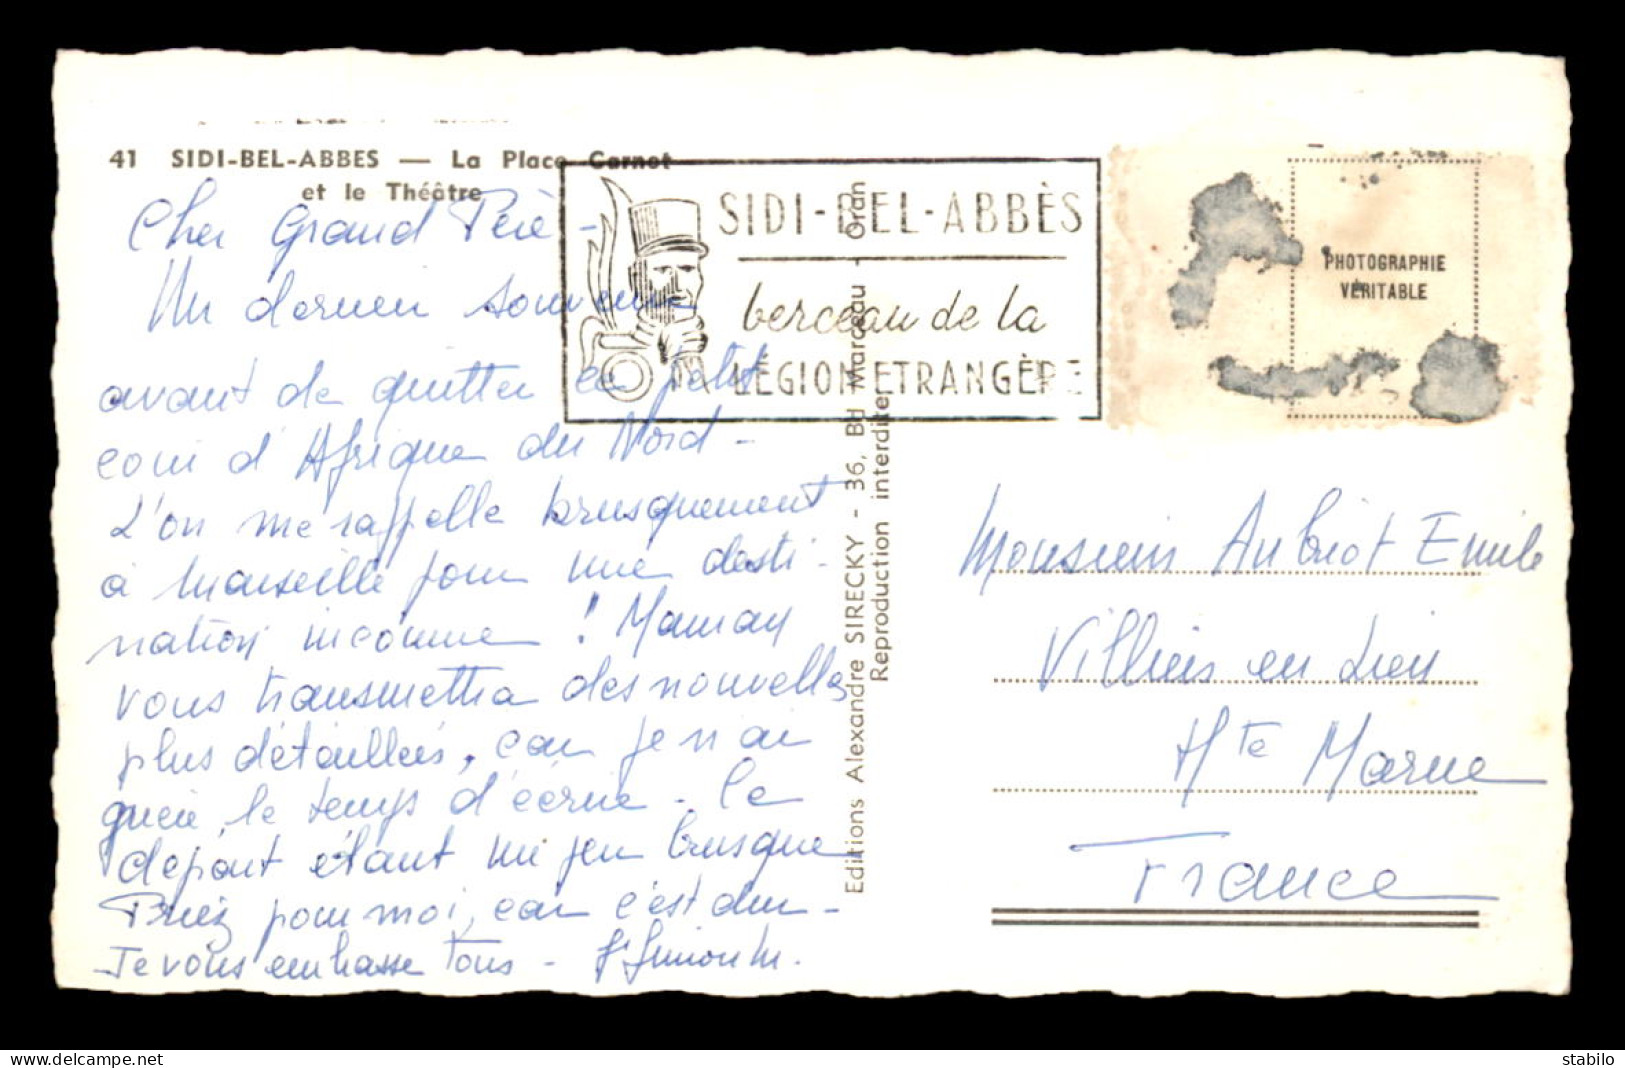 41 SIDI-BEL-ABBES — La Place Carnot
et le Théâtre
Cher Grand Père -
Un dernier souvenir
avant de quitter ce petit
coin d'Afrique du Nord -
L'on me rappelle brusquement
à Marseille pour une desti-
nation inconnue ! Maman
vous transmettra des nouvelles
plus détaillées, car je n'ai
guère le temps d'écrire - Le
départ étant un peu brusque
Priez pour moi, car c'est dur -
Je vous embrasse tous -
SIDI-BEL-ABBÈS
berceau de la
LÉGION ETRANGÈRE
PHOTOGRAPHIE
VÉRITABLE
Editions Alexandre SIRECKY - 36, Bd Marceau - Oran
Reproduction interdite
Monsieur Aubriot Emile
Villiers en Lieu
Hte Marne
France
stabilo